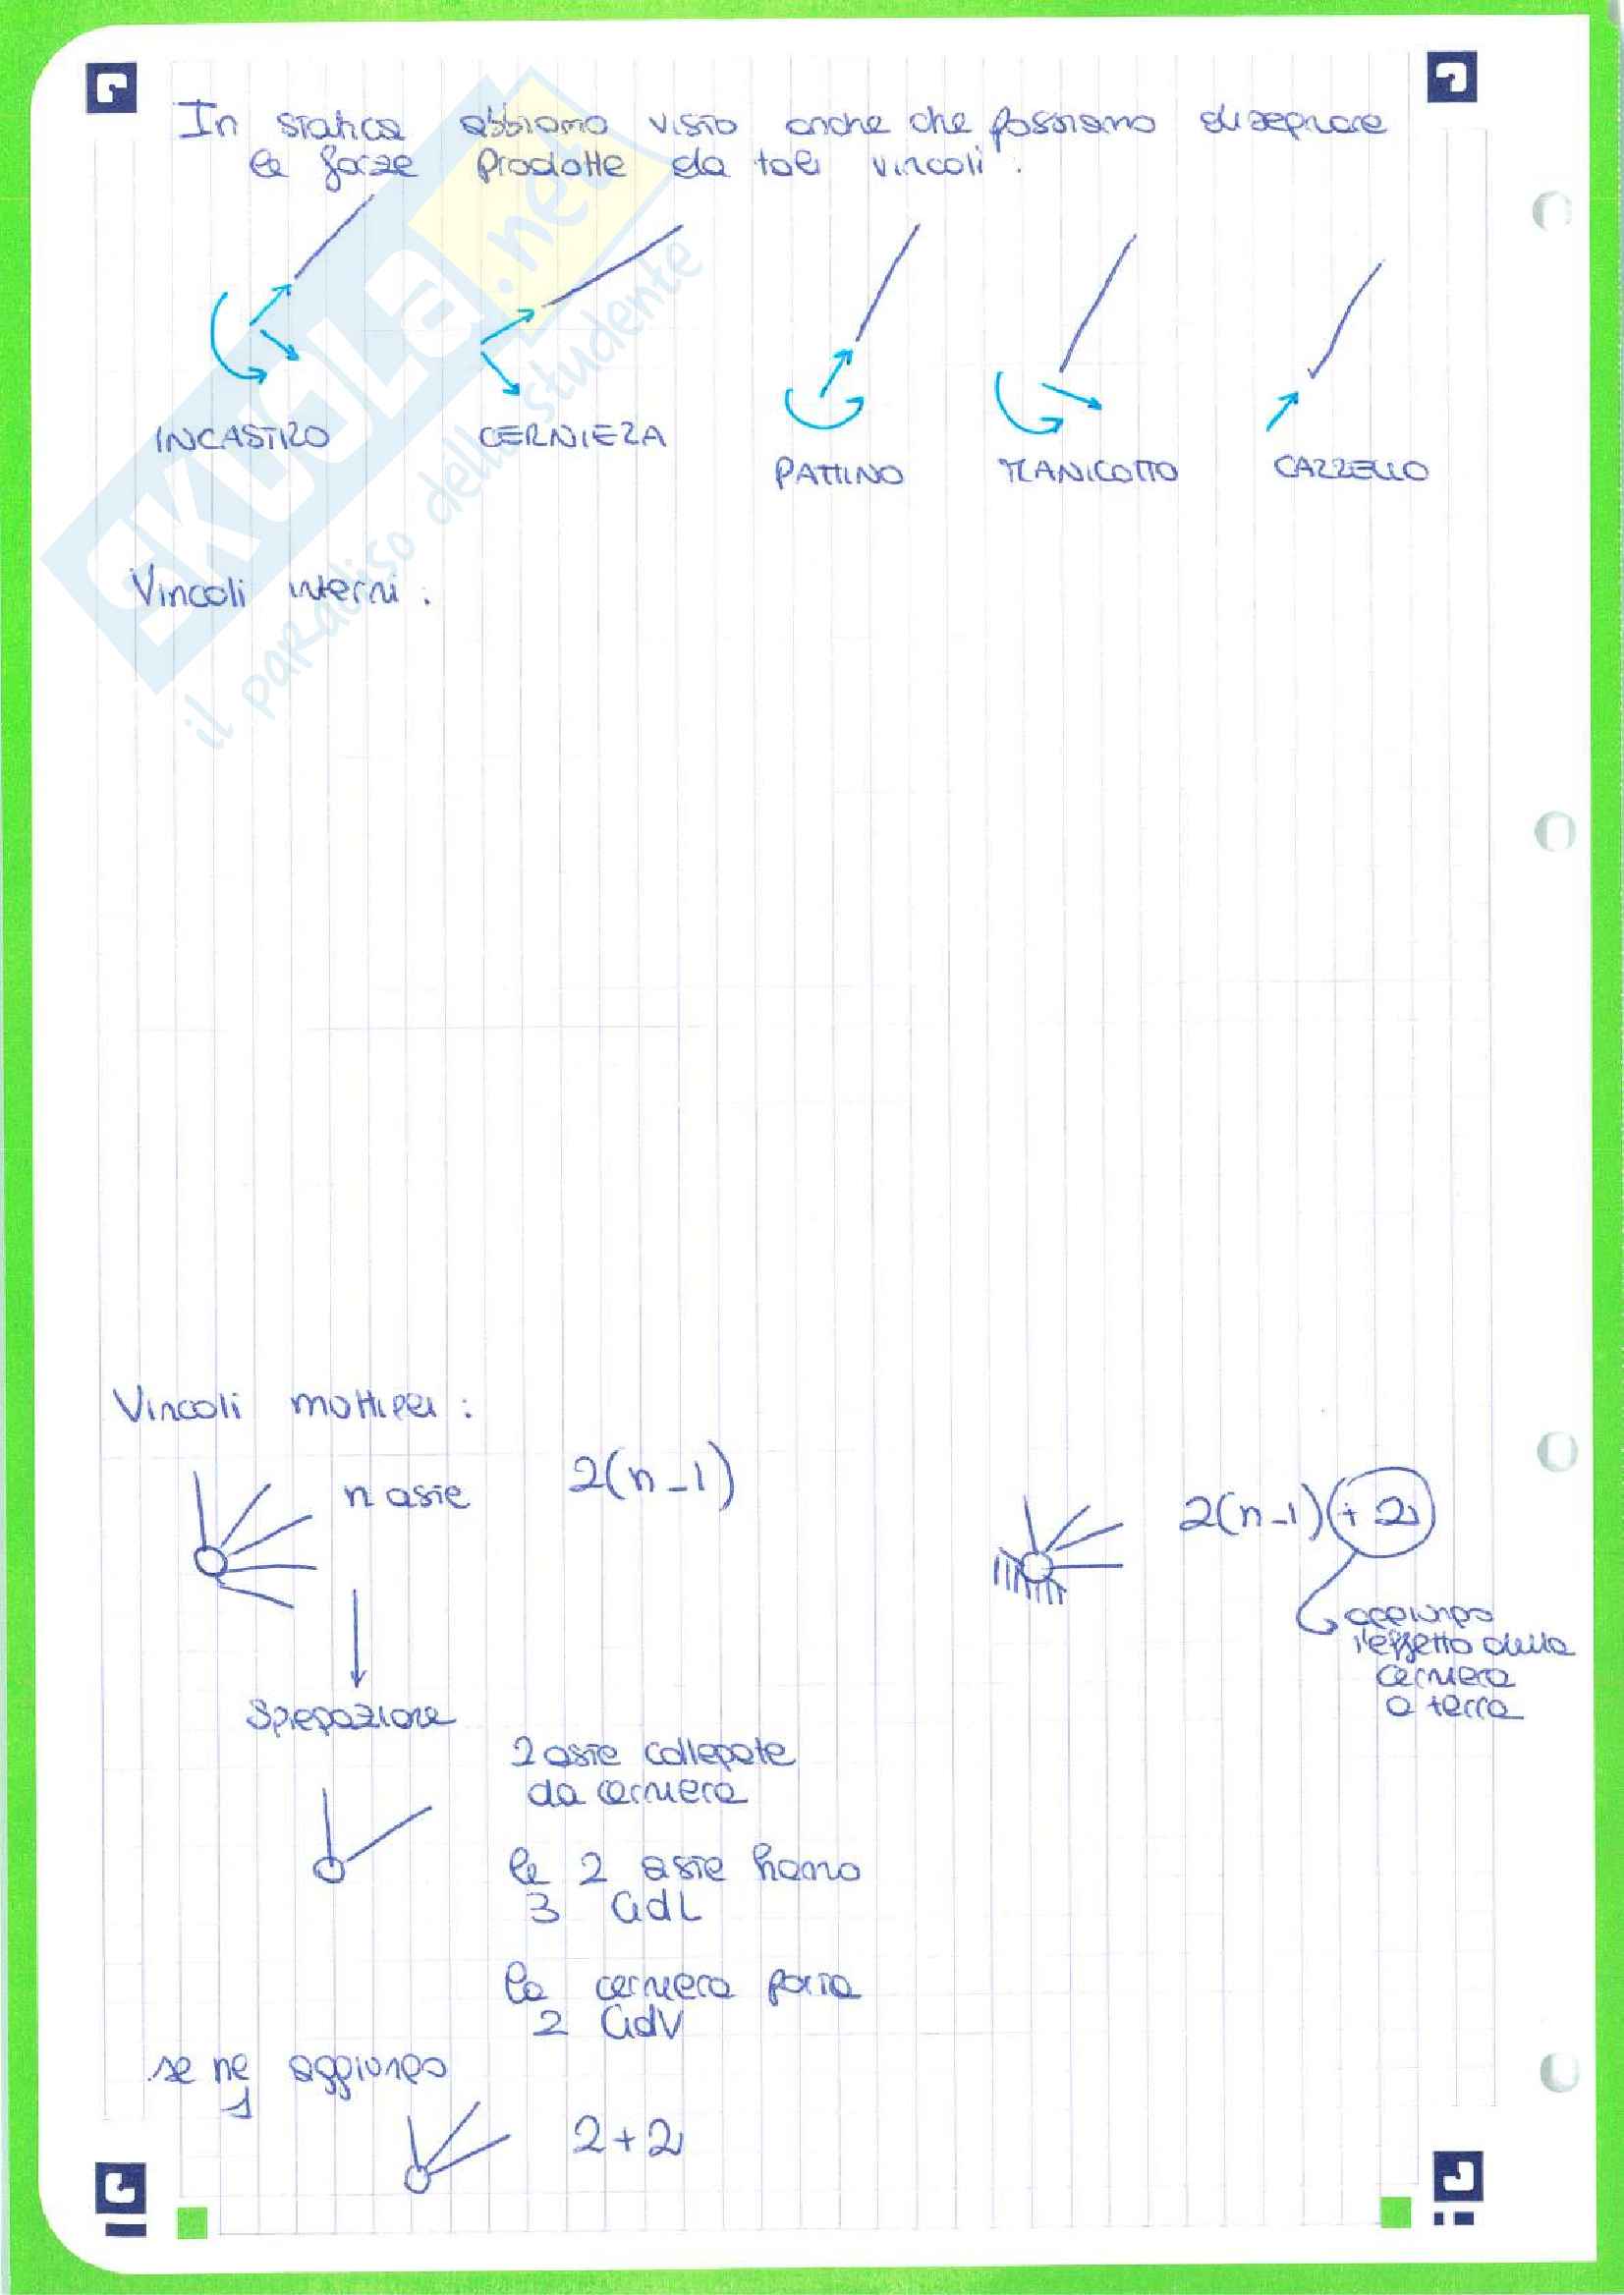 In statica abbiamo visto anche che possiamo disegnare
le forze prodotte da tali vincoli:
INCASTRO
CERNIERA
PATTINO
MANICOTTO
CARRELLO
Vincoli interni:
SKUOLA.net
il paradiso dello studente
Vincoli multipli:
n aste
2(n-1)
2(n-1)+2
aggiungo
l'effetto della
cerniera
a terra
Spiegazione
2 aste collegate
da cerniera
le 2 aste hanno
3 GdL
la cerniera porta
2 GdV
se ne aggiungo
1
2+2